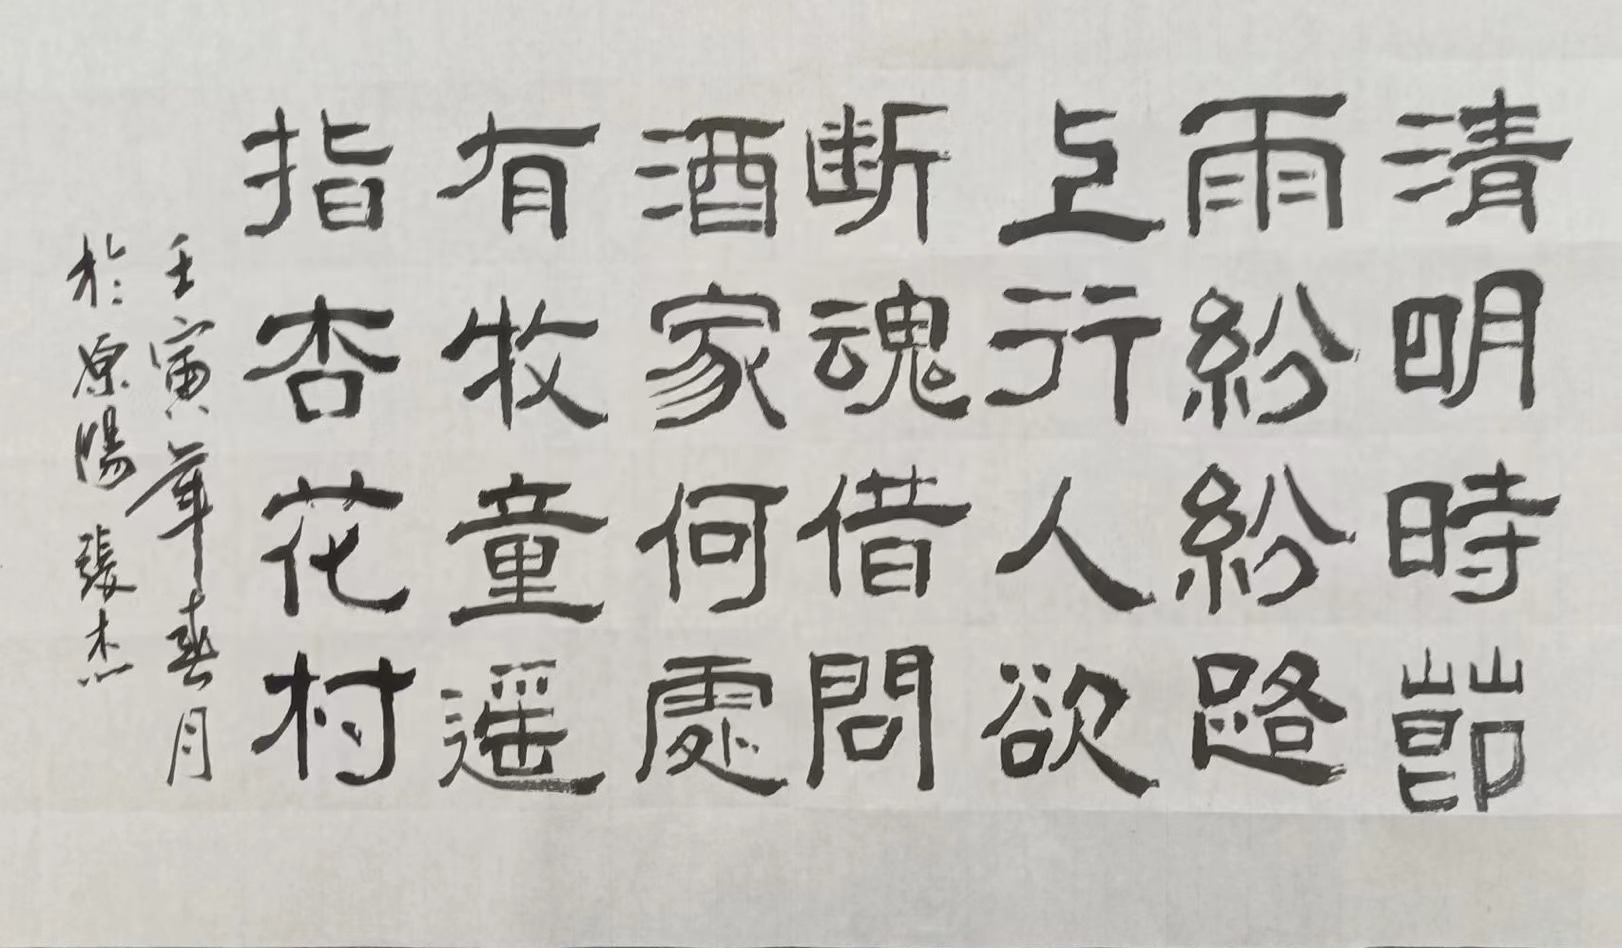 清明時節
雨紛紛路
上行人欲
断魂借問
酒家何處
有牧童遥
指杏花村
壬寅年春月
於原陽張杰